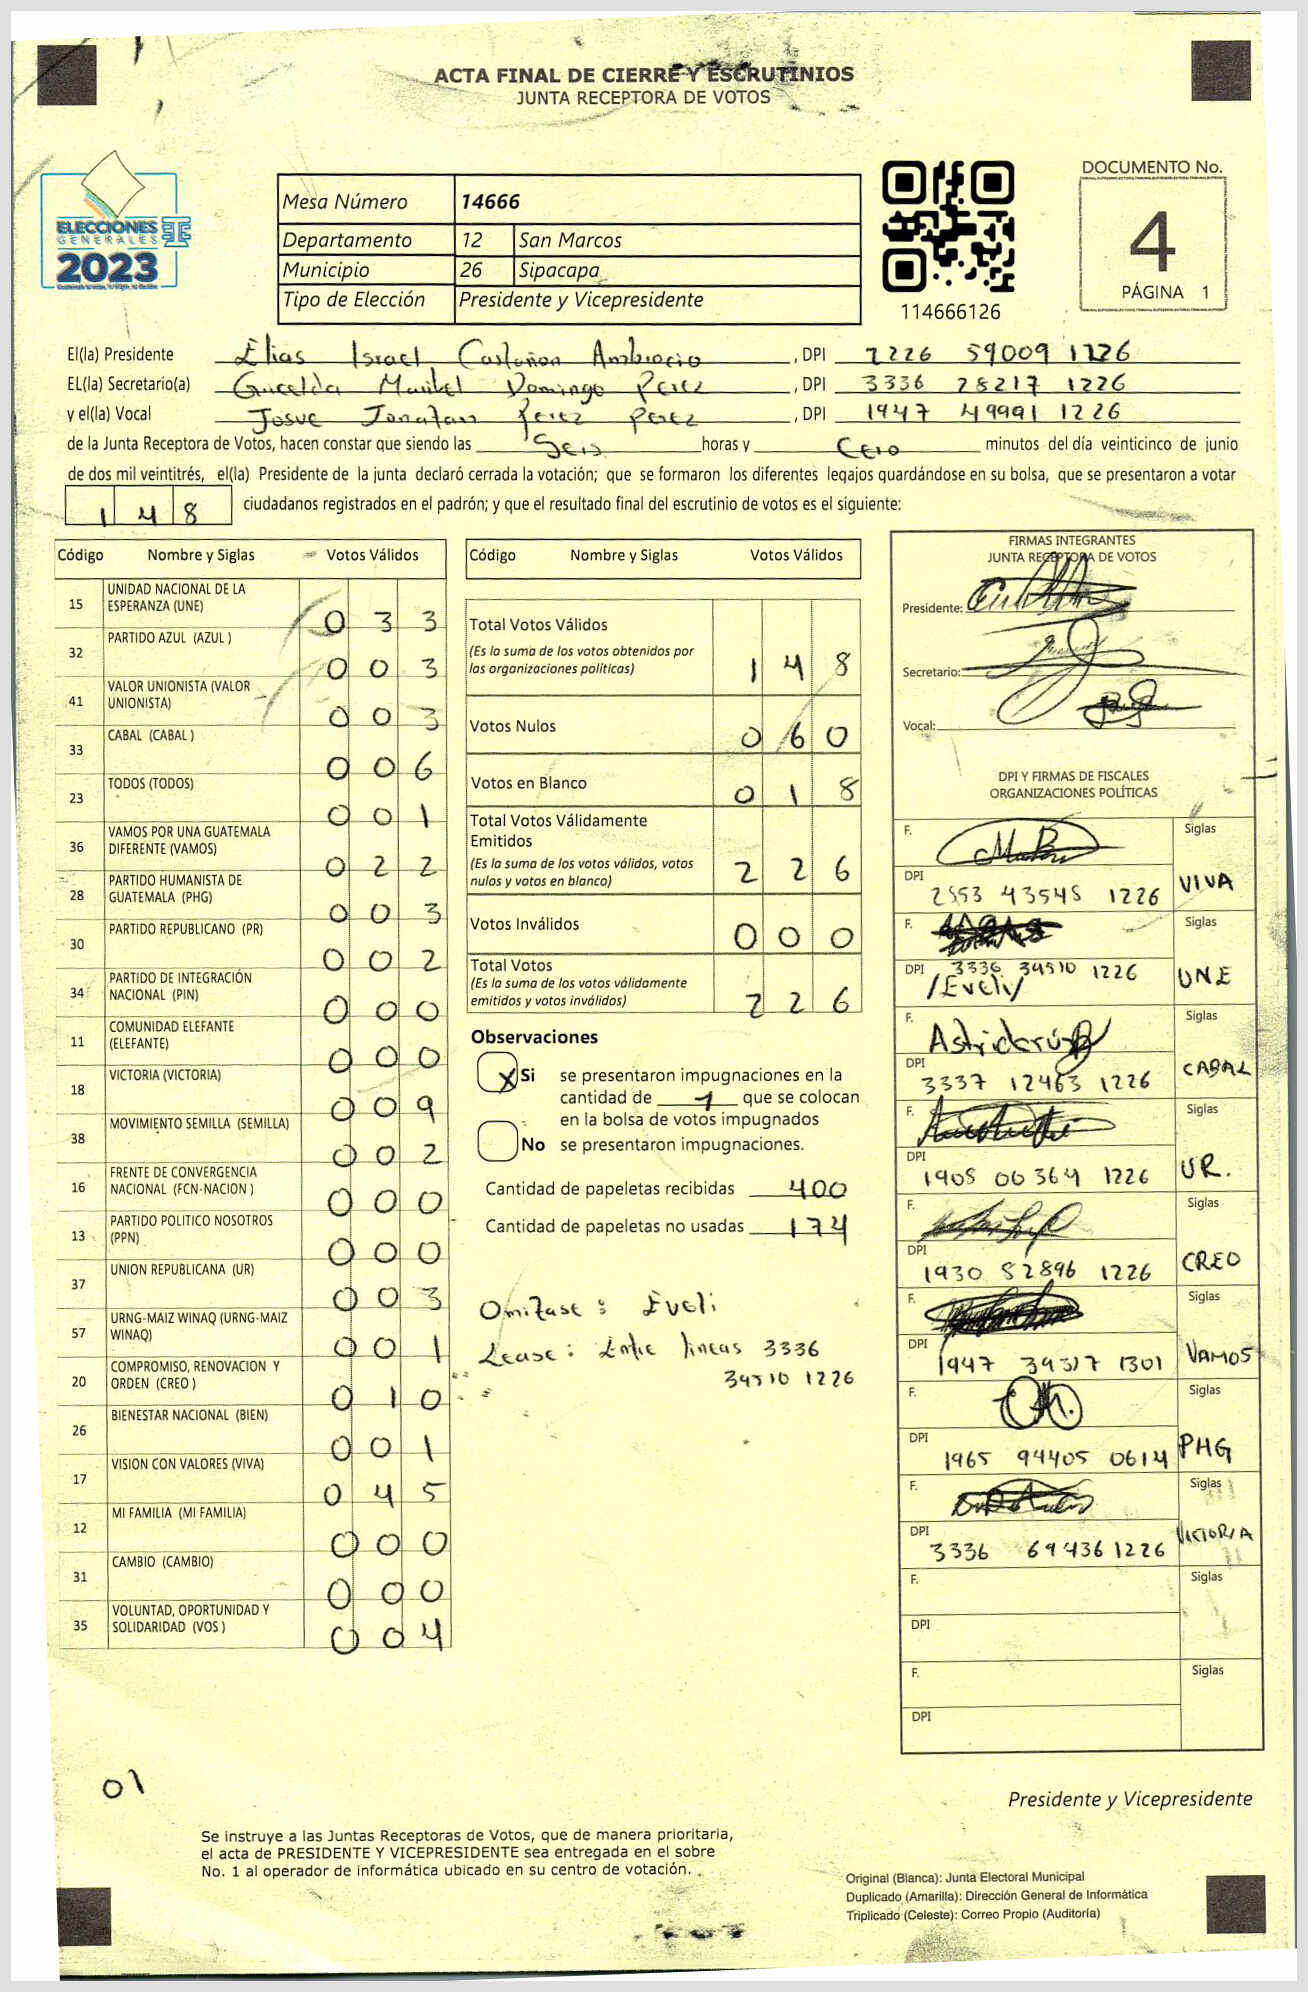 ACTA FINAL DE CIERRE Y ESCRUTINIOS
JUNTA RECEPTORA DE VOTOS
ELECCIONES
GENERALES
2023
Mesa Número 14666
Departamento 12 San Marcos
Municipio 26 Sipacapa
Tipo de Elección Presidente y Vicepresidente
114666126
DOCUMENTO No.
4
PÁGINA 1
El(la) Presidente Elias Israel Castañon Ambrocio , DPI 2226 59009 1226
EL(la) Secretario(a) Gricelda Maribel Domingo Perez , DPI 3336 28217 1226
y el(la) Vocal Josue Jonatan Perez Perez , DPI 1947 49991 1226
de la Junta Receptora de Votos, hacen constar que siendo las Seis horas y Cero minutos del día veinticinco de junio
de dos mil veintitrés, el(la) Presidente de la junta declaró cerrada la votación; que se formaron los diferentes legajos quardándose en su bolsa, que se presentaron a votar
148 ciudadanos registrados en el padrón; y que el resultado final del escrutinio de votos es el siguiente:
Código Nombre y Siglas Votos Válidos
15 UNIDAD NACIONAL DE LA ESPERANZA (UNE) 0 3 3
32 PARTIDO AZUL (AZUL ) 0 0 3
41 VALOR UNIONISTA (VALOR UNIONISTA) 0 0 3
33 CABAL (CABAL ) 0 0 6
23 TODOS (TODOS) 0 0 1
36 VAMOS POR UNA GUATEMALA DIFERENTE (VAMOS) 0 2 2
28 PARTIDO HUMANISTA DE GUATEMALA (PHG) 0 0 3
30 PARTIDO REPUBLICANO (PR) 0 0 2
34 PARTIDO DE INTEGRACIÓN NACIONAL (PIN) 0 0 0
11 COMUNIDAD ELEFANTE (ELEFANTE) 0 0 0
18 VICTORIA (VICTORIA) 0 0 9
38 MOVIMIENTO SEMILLA (SEMILLA) 0 0 2
16 FRENTE DE CONVERGENCIA NACIONAL (FCN-NACION ) 0 0 0
13 PARTIDO POLITICO NOSOTROS (PPN) 0 0 0
37 UNION REPUBLICANA (UR) 0 0 3
57 URNG-MAIZ WINAQ (URNG-MAIZ WINAQ) 0 0 1
20 COMPROMISO, RENOVACION Y ORDEN (CREO ) 0 1 0
26 BIENESTAR NACIONAL (BIEN) 0 0 1
17 VISION CON VALORES (VIVA) 0 4 5
12 MI FAMILIA (MI FAMILIA) 0 0 0
31 CAMBIO (CAMBIO) 0 0 0
35 VOLUNTAD, OPORTUNIDAD Y SOLIDARIDAD (VOS ) 0 0 4
Código Nombre y Siglas Votos Válidos
Total Votos Válidos 1 4 8
(Es la suma de los votos obtenidos por
las organizaciones políticas)
Votos Nulos 0 6 0
Votos en Blanco 0 1 8
Total Votos Válidamente
Emitidos
(Es la suma de los votos válidos, votos
nulos y votos en blanco) 2 2 6
Votos Inválidos 0 0 0
Total Votos
(Es la suma de los votos válidamente
emitidos y votos inválidos) 2 2 6
Observaciones
X Si se presentaron impugnaciones en la
cantidad de 1 que se colocan
en la bolsa de votos impugnados
No se presentaron impugnaciones.
Cantidad de papeletas recibidas 400
Cantidad de papeletas no usadas 174
Omitase : Eveli
Lease : Entre lineas 3336
34510 1226
FIRMAS INTEGRANTES
JUNTA RECEPTORA DE VOTOS
Presidente:
Secretario:
Vocal:
DPI Y FIRMAS DE FISCALES
ORGANIZACIONES POLÍTICAS
F. Siglas
DPI 2553 43545 1226 VIVA
F. Siglas
DPI 3336 34510 1226 UNE
/Eveli/
F. Siglas
DPI 3337 12463 1226 CABAL
F. Siglas
DPI 1905 00364 1226 UR.
F. Siglas
DPI 1930 52896 1226 CREO
F. Siglas
DPI 1947 39317 1301 VAMOS
F. Siglas
DPI 1965 94405 0614 PHG
F. Siglas
DPI 3336 69436 1226 VICTORIA
F. Siglas
DPI
F. Siglas
DPI
01
Presidente y Vicepresidente
Se instruye a las Juntas Receptoras de Votos, que de manera prioritaria,
el acta de PRESIDENTE Y VICEPRESIDENTE sea entregada en el sobre
No. 1 al operador de informática ubicado en su centro de votación.
Original (Blanca): Junta Electoral Municipal
Duplicado (Amarilla): Dirección General de Informática
Triplicado (Celeste): Correo Propio (Auditoría)